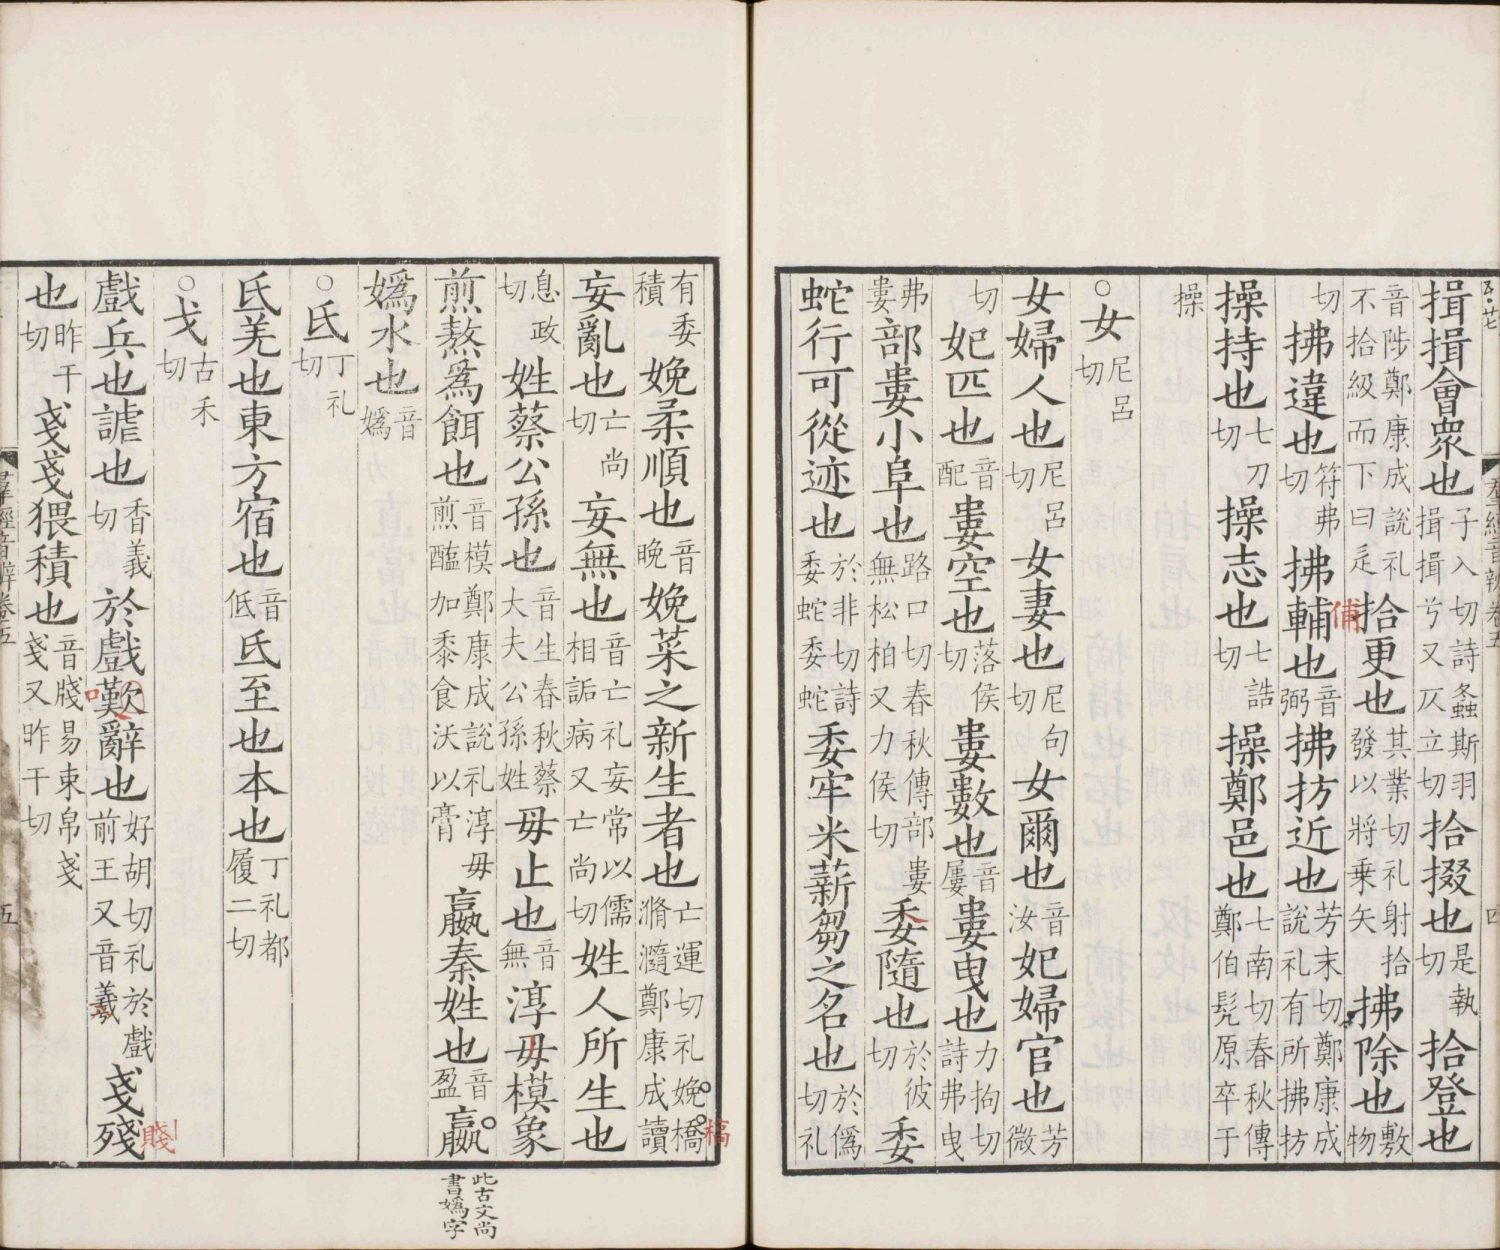 揖揖會衆也子入切詩螽斯羽揖揖兮又仄立切拾掇也是執切拾登也
音陟鄭康成說礼不拾級而下曰辵拾更也其業切礼射拾發以將乗矢拂除也敷物
切拂違也符弗切拂輔也音弼拂拭近也芳末切鄭康成說礼有所拂拭
操持也七刀切操志也七誥切操鄭邑也七南切春秋傳鄭伯髡原卒于
操
○女尼呂切
女婦人也尼呂切女妻也尼句切女爾也音汝妃婦官也芳微
切妃匹也音配婁空也落侯切婁數也音屢婁曳也力拘切詩弗曳
弗婁部婁小阜也路口切春秋傳部婁無松柏又力侯切委隨也於彼切委
蛇行可從迹也於非切詩委蛇委蛇委牢米薪芻之名也於僞切礼
有委積娩柔順也音晚娩菜之新生者也亡運切礼娩槁滫瀡鄭康成讀
妄亂也亡尚切妄無也音亡礼妄常以儒相詬病又亡尚切姓人所生也
息政切姓蔡公孫也音生春秋蔡大夫公孫姓毋止也音無淳毋模象
煎熬爲餌也音模鄭康成說礼淳毋煎醢加黍食沃以膏嬴秦姓也音盈嬴
嬀水也音嬀
○氐丁礼切
氐羌也東方宿也音低氐至也本也丁礼都履二切
○戈古禾切
戲兵也謔也香義切於戲歎辭也好胡切礼於戲前王又音羲戔殘
也昨干切戔戔猥積也音牋易束帛戔戔又昨干切
羣經音辨卷五
四
羣經音辨卷五
五
此古文尚書嬀字
俌
槁
賤